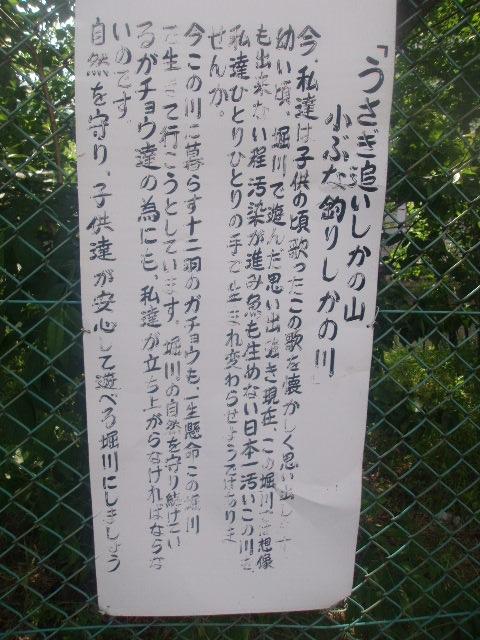 「うさぎ追いしかの山
小ぶな釣りしかの川
今、私達は子供の頃歌ったこの歌を懐かしく思い出します
幼い頃、堀川で遊んだ思い出 現在、この堀川では想像
も出来ない程汚染が進み魚も生めない日本一汚いこの川を
私達ひとりひとりの手で生まれ変わらせようではありま
せんか。
今この川に暮らす十二羽のガチョウも、一生懸命この堀川
で生きて行こうとしています。堀川の自然を守り続けてい
るガチョウ達の為にも、私達が立ち上がらなければならな
いのです。
自然を守り、子供達が安心して遊べる堀川にしましょう